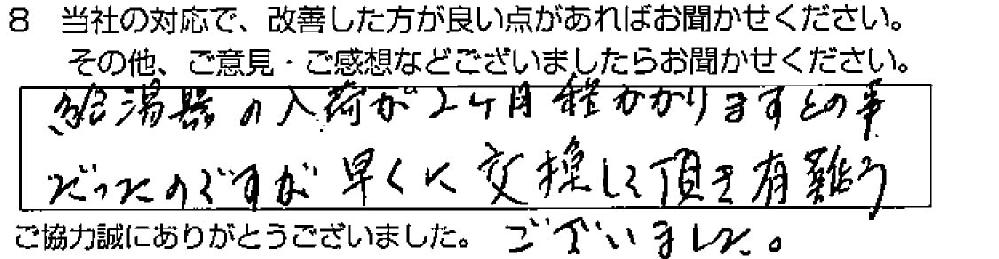 8 当社の対応で、改善した方が良い点があればお聞かせください。
その他、ご意見・ご感想などございましたらお聞かせください。
給湯器の入荷が2ヶ月程かかりますとの事
だったのですが早くに交換して頂き有難う
ご協力誠にありがとうございました。ございました。